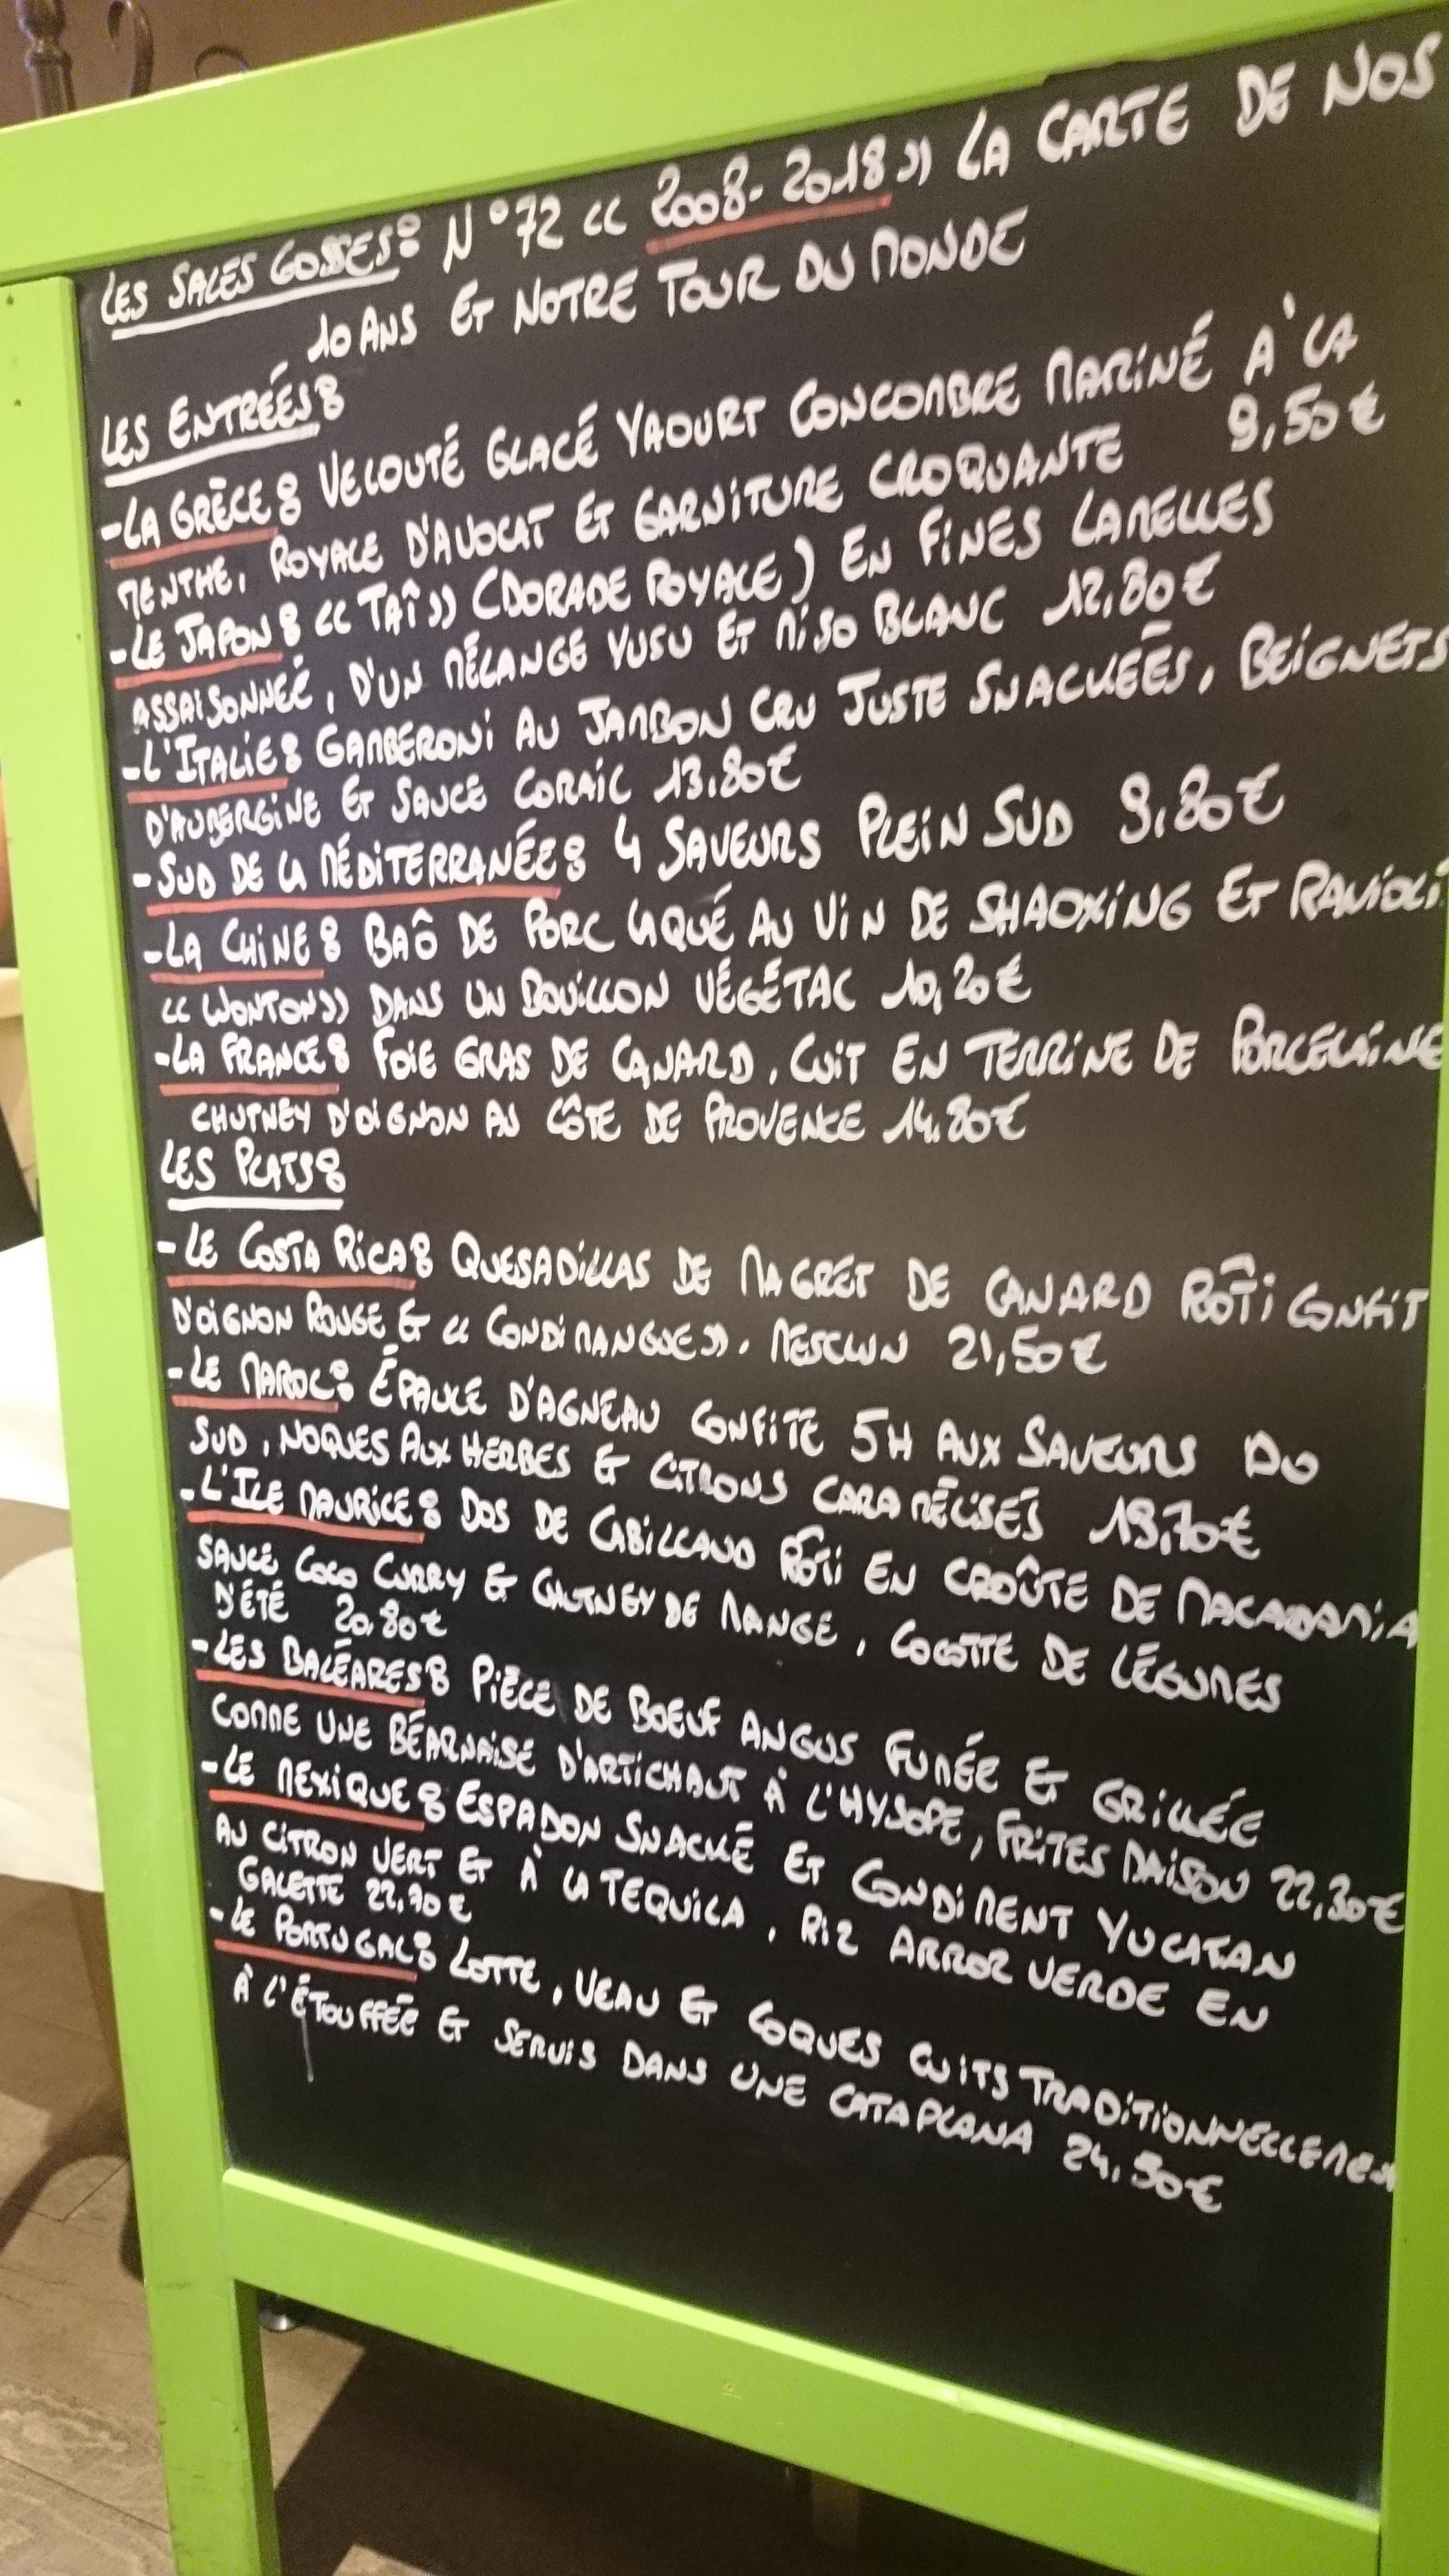 LES SALES GOSSES: N°72 << 2008-2018 >> LA CARTE DE NOS
10 ANS ET NOTRE TOUR DU MONDE
LES ENTRÉES:
-LA GRÈCE: VELOUTÉ GLACÉ YAOURT CONCOMBRE MARINÉ À LA
MENTHE, ROYALE D'AVOCAT ET GARNITURE CROQUANTE 9,50€
-LE JAPON: << TAÎ >> (DORADE ROYALE) EN FINES LAMELLES
ASSAISONNÉE, D'UN MÉLANGE YUSU ET MISO BLANC 12,80€
-L'ITALIE: GAMBERONI AU JAMBON CRU JUSTE SNACKÉES, BEIGNETS
D'AUBERGINE ET SAUCE CORAIL 13,80€
-SUD DE LA MÉDITERRANÉE: 4 SAVEURS PLEIN SUD 9,80€
-LA CHINE: BAÔ DE PORC LAQUÉ AU VIN DE SHAOXING ET RAVIOLI
<< WONTON >> DANS UN BOUILLON VÉGÉTAL 10,20€
-LA FRANCE: FOIE GRAS DE CANARD, CUIT EN TERRINE DE PORCELAINE
CHUTNEY D'OIGNON AU CÔTE DE PROVENCE 14,80€
LES PLATS:
-LE COSTA RICA: QUESADILLAS DE MAGRET DE CANARD RÔTI CONFIT
D'OIGNON ROUGE ET << CONDIMANGUE >>, MESCLUN 21,50€
-LE MAROC: ÉPAULE D'AGNEAU CONFITE 5H AUX SAVEURS DU
SUD, NOQUES AUX HERBES ET CITRONS CARAMÉLISÉS 19,70€
-L'ILE MAURICE: DOS DE CABILLAUD RÔTI EN CROÛTE DE MACADAMIA
SAUCE COCO CURRY ET CHUTNEY DE MANGE, COCOTTE DE LÉGUMES
D'ÉTÉ 20,80€
-LES BALÉARES: PIÈCE DE BOEUF ANGUS FUMÉE ET GRILLÉE
COMME UNE BÉARNAISE D'ARTICHAUT À L'HYSOPE, FRITES MAISON 22,30€
-LE MEXIQUE: ESPADON SNACKÉ ET CONDIMENT YUCATAN
AU CITRON VERT ET À LA TEQUILA, RIZ ARROZ VERDE EN
GALETTE 22,70€
-LE PORTUGAL: LOTTE, VEAU ET COQUES CUITS TRADITIONNELLEMEN
À L'ÉTOUFFÉE ET SERVIS DANS UNE CATAPLANA 24,50€